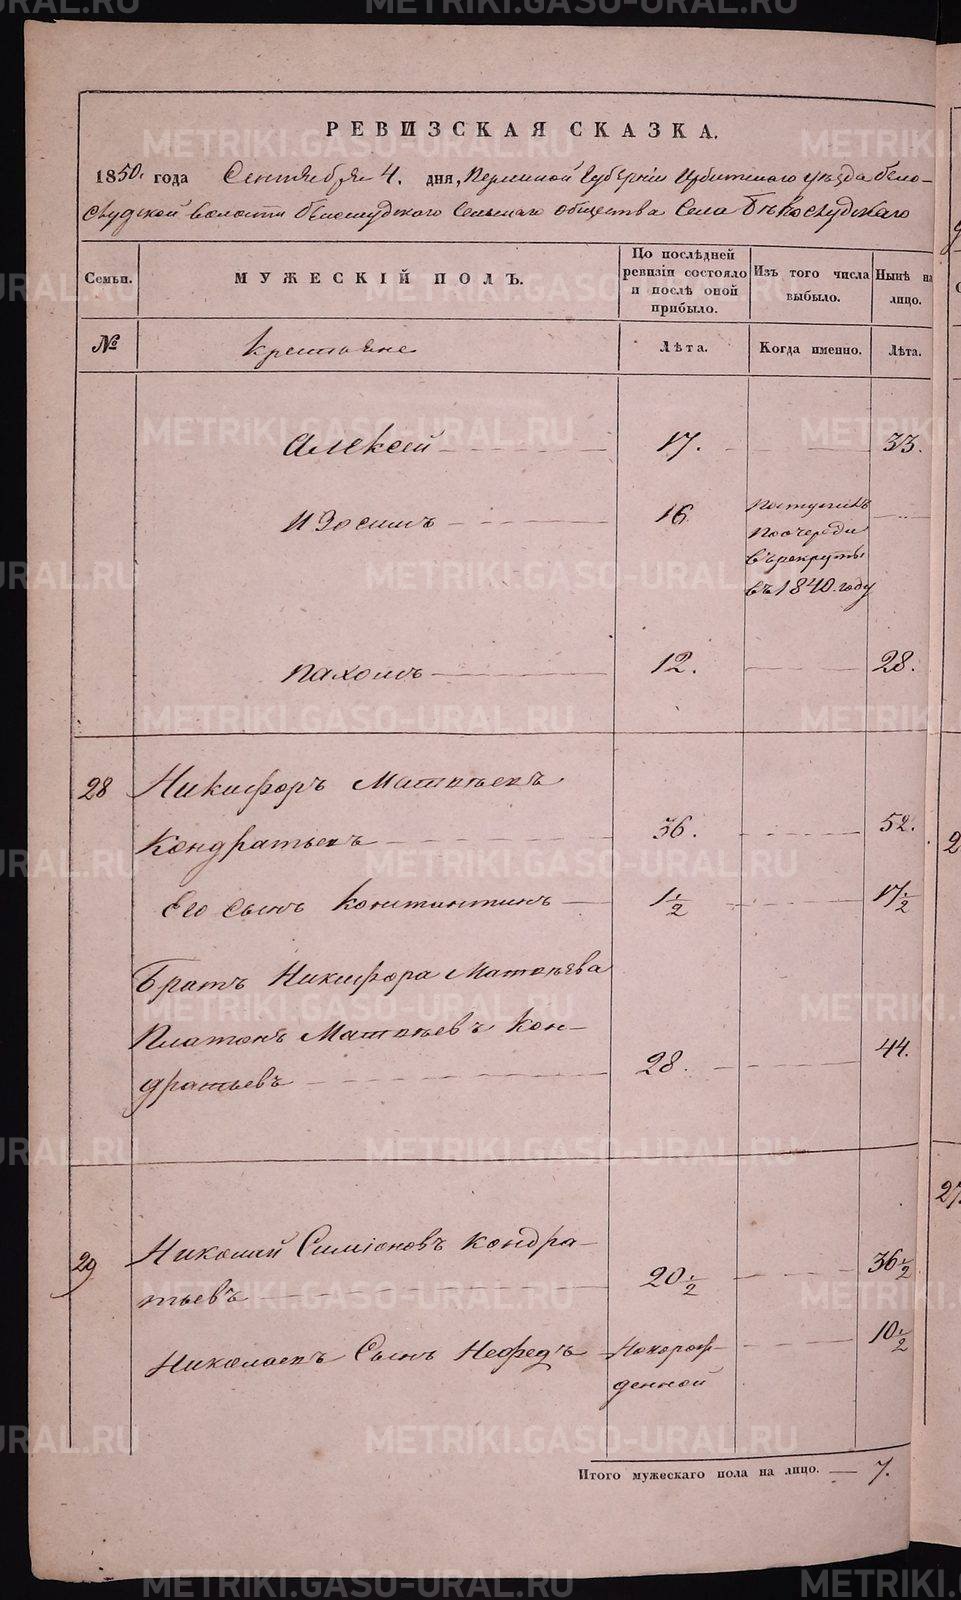 РЕВИЗСКАЯ СКАЗКА.
1850. года Сентября 4. дня, Пермской Губерніи Ирбитского уезда бело-
слудской волости белослудского Сельскаго общества Села Бѣлослудскаго
Семьи.
МУЖЕСКІЙ ПОЛЪ.
По послѣдней ревизіи состояло и послѣ оной прибыло.
Изъ того числа выбыло.
Нынѣ на лицо.
№
крестьяне
Лѣта.
Когда именно.
Лѣта.
Алексей 17. 33.
Изосимъ 16
Поступилъ
по очереди
въ рекруты
въ 1840. году
Пахомъ 12. 28.
28 Никифоръ Матвѣевъ
Кондратьевъ 36. 52.
Его сынъ Константинъ 1 1/2 17 1/2
Братъ Никифора Матвѣева
Платонъ Матвѣевъ Кон-
дратьевъ 28. 44.
29 Николай Симіоновъ Кондра-
тьевъ 20 1/2 36 1/2
Николаевъ Сынъ Нефедъ Новорож-
денной 10 1/2
Итого мужескаго пола на лицо. 7.
2
27
METRIKI.GASO-URAL.RU